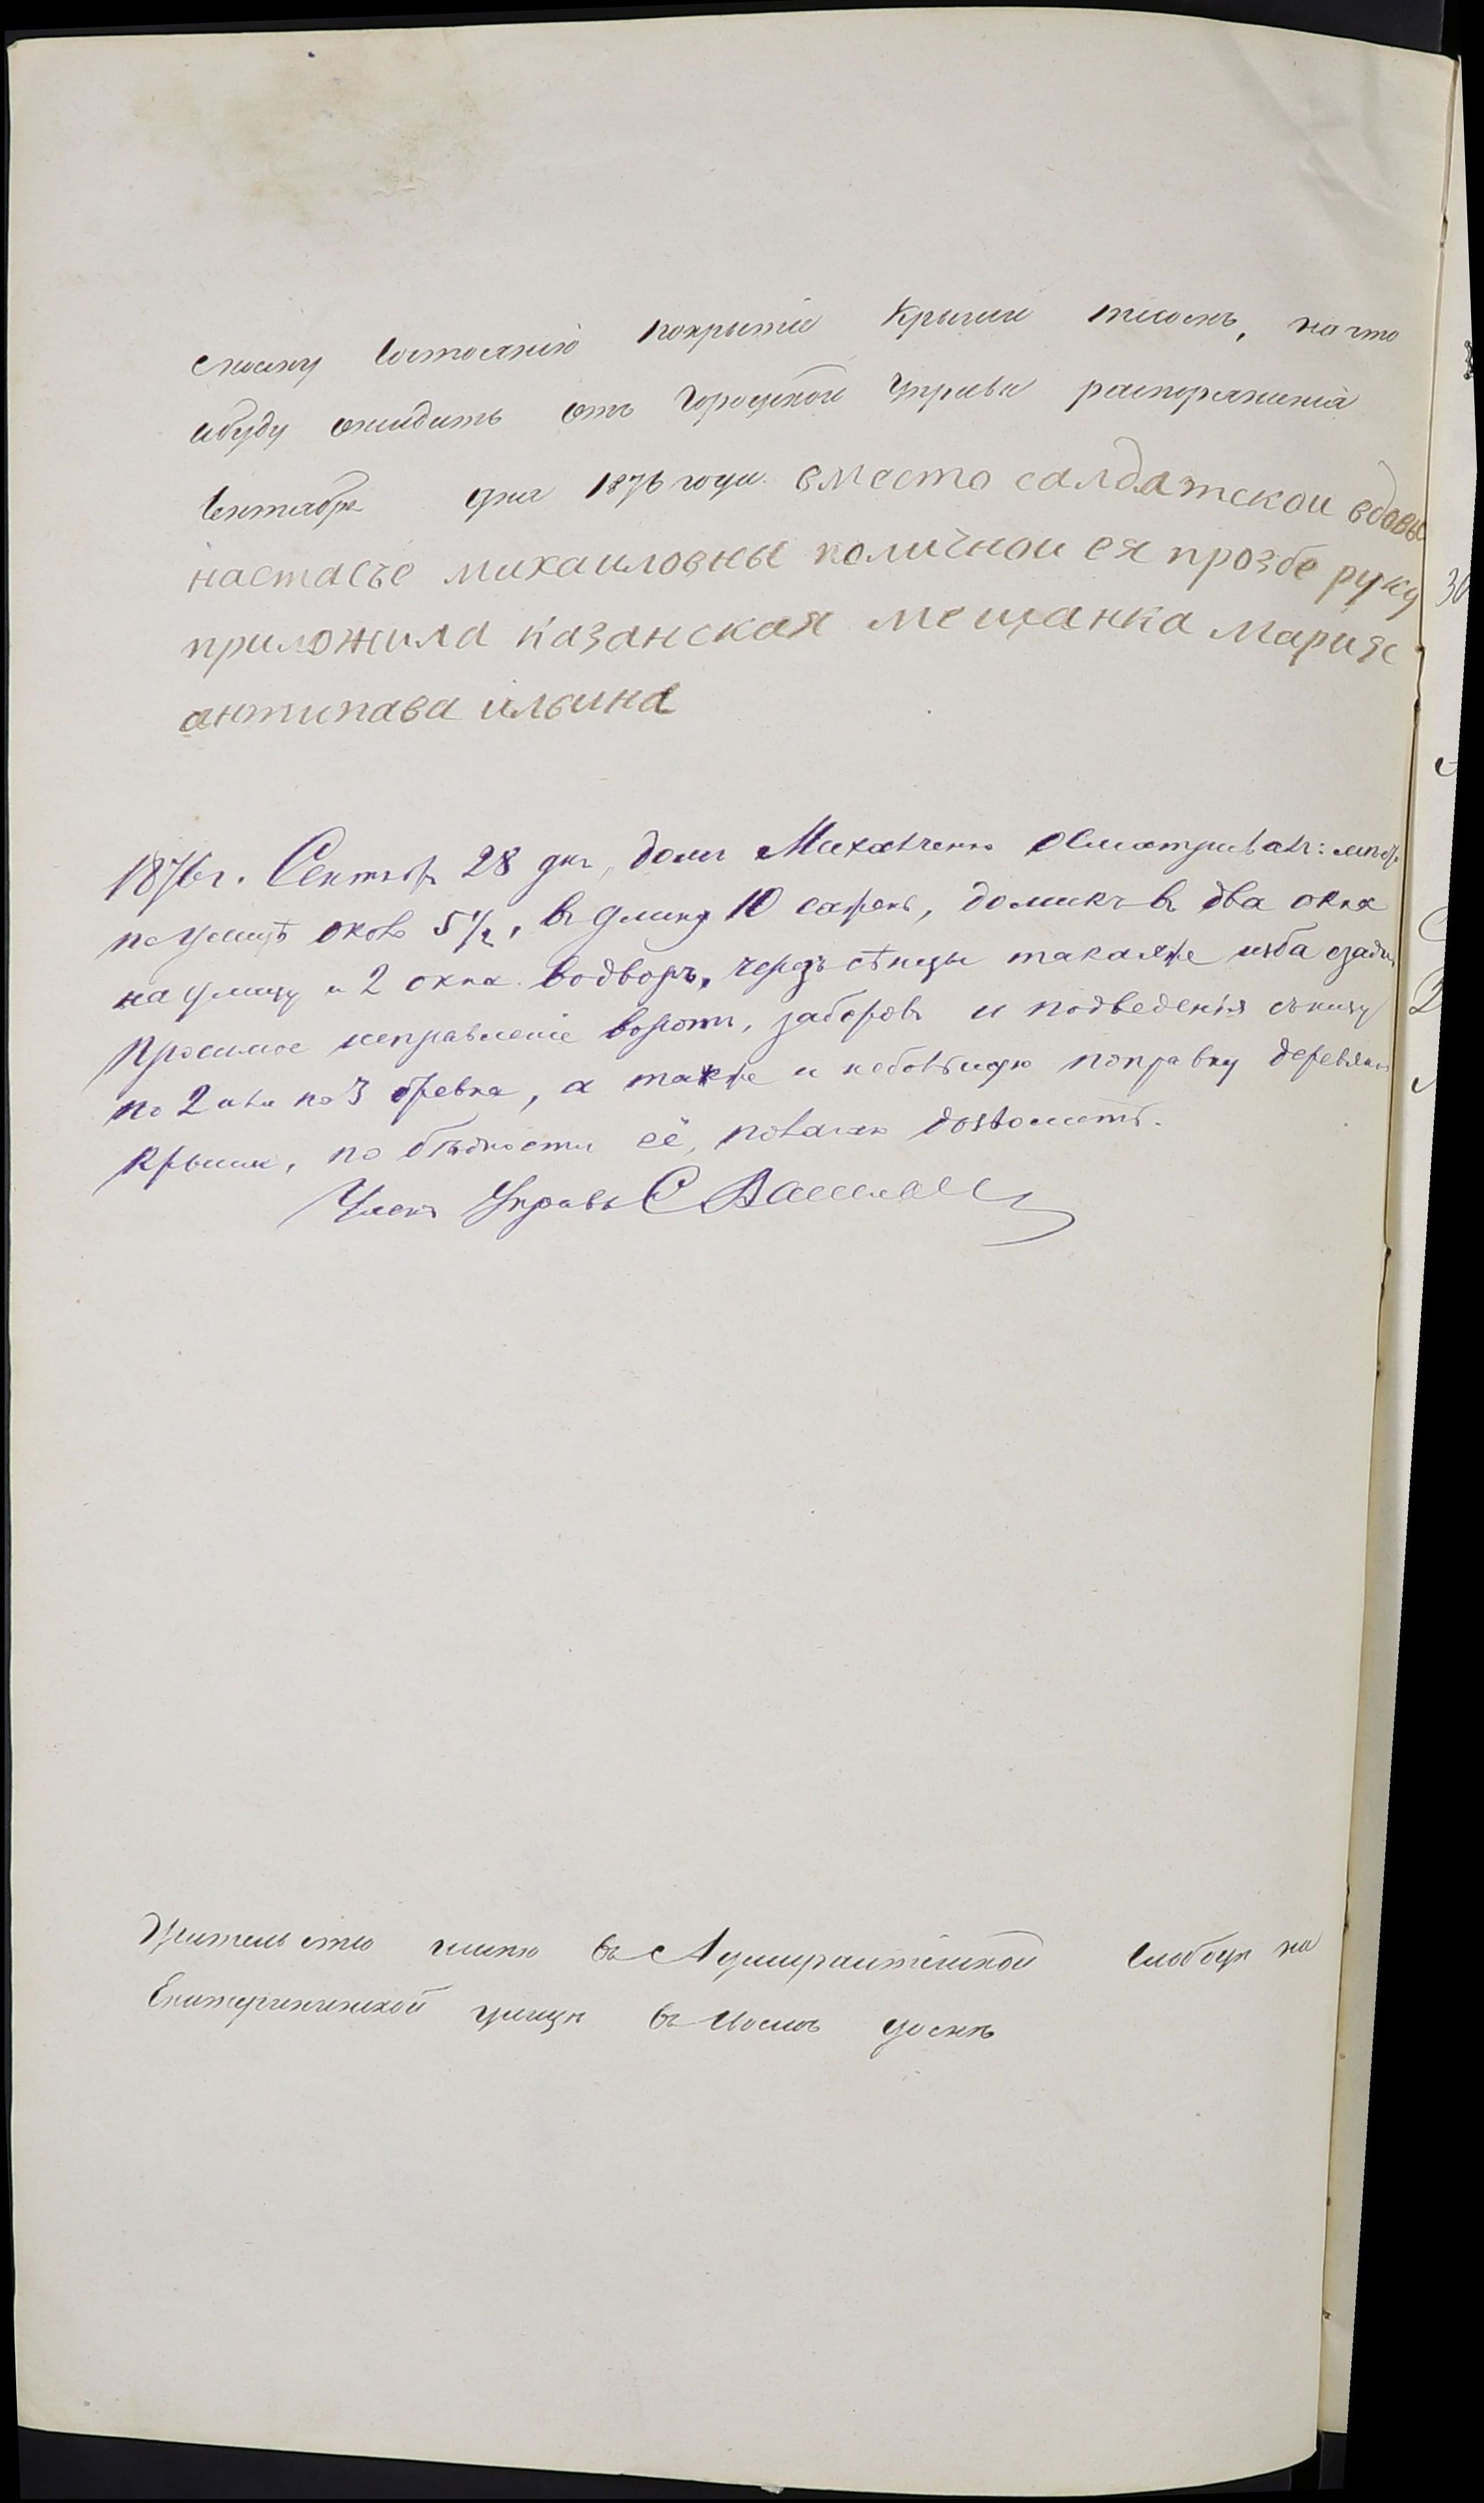 своему состоянію покрытіе крыши тесомъ, начто
ибуду ожидать отъ Городской Управы распоряженія
Сентября дня 1876 года. вместо салдатской вдовы
настасье михаиловны поличнои ея прозбе руку
приложила казанская мещанка мария
антипава ильина
1876 г. Сентябр 28 дня, домъ осматривалъ:
по улицѣ около 5 1/2, въ длину 10 сажень, домикъ въ два окна
на улицу и 2 окна во дворъ, чрезъ сѣнцы такаяже изба сзади
Просимое исправленіе воротъ, заборовъ и подведенія снизу
по 2 или по 3 бревна, а также и небольшую поправку деревянн
крыши, по бѣдности её, полагаю дозволить.
Членъ Управы С
Жительство имею въ Адмиралтейской слободе на
Екатерининской улице въ своемъ доме